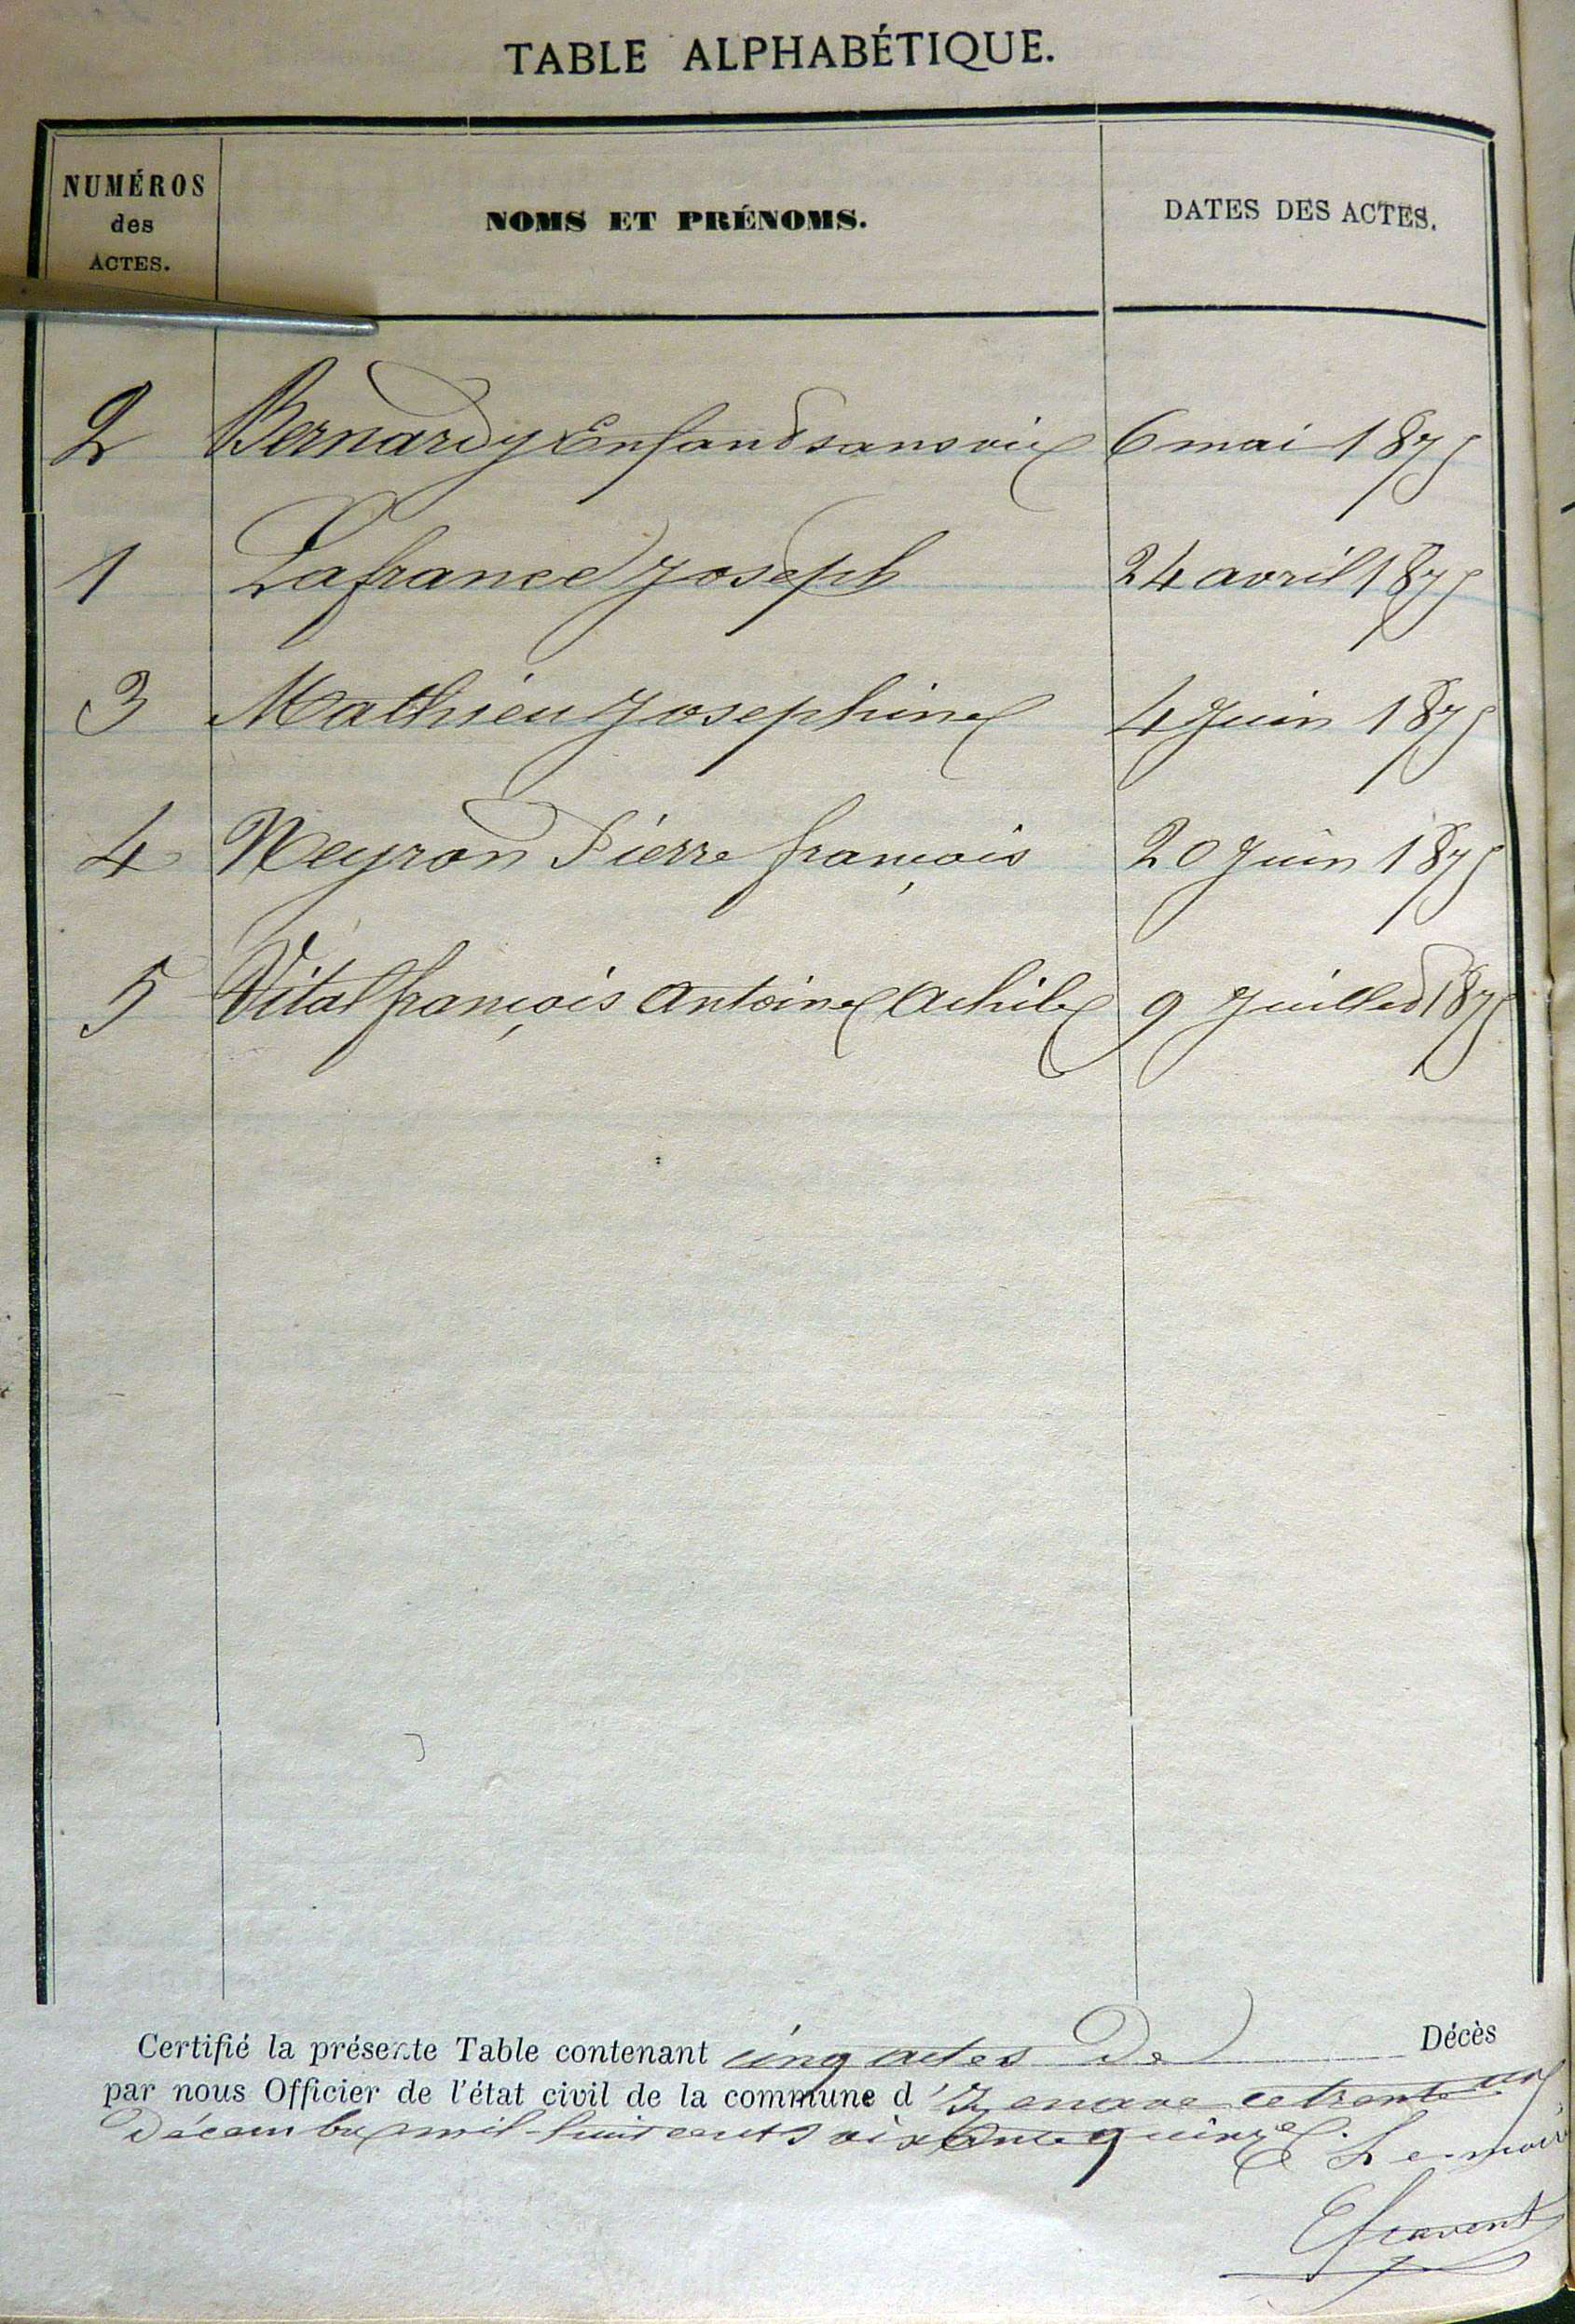 TABLE ALPHABÉTIQUE.
NUMÉROS des ACTES. NOMS ET PRÉNOMS. DATES DES ACTES.
2 Bernardy Enfant sans vie 6 mai 1875
1 Lafrance Joseph 24 avril 1875
3 Mathieu Josephine 4 Juin 1875
4 Neyron Pierre françois 20 Juin 1875
5 Vital françois Antoine Achile 9 Juillet 1875
Certifié la présente Table contenant cinq actes De Décès
par nous Officier de l'état civil de la commune d' ce trente un
Décembre mil-huit cent soixante quinze Le maire